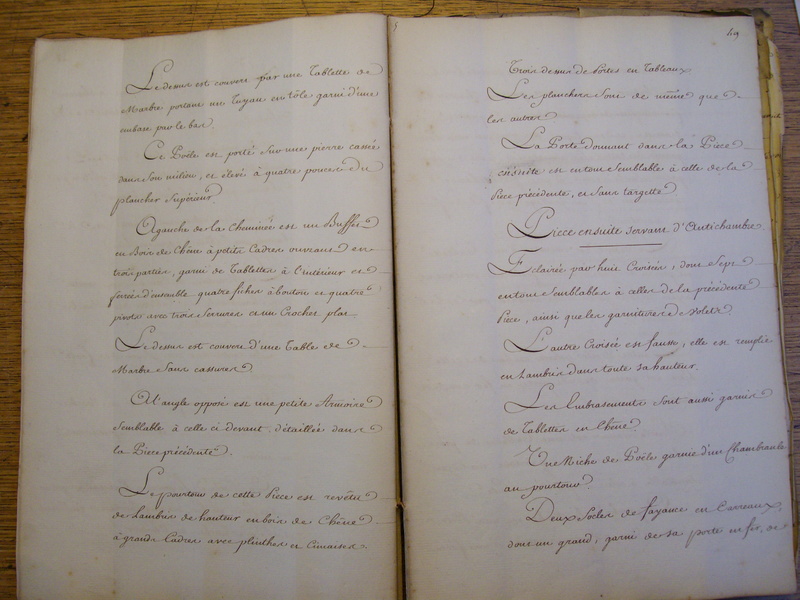 Le dessus est couvert par une Tablette de
Marbre portant un Tuyau en tôle garni d'une
embase par le bas.
Ce Poële est porté sur une pierre cassée
dans son milieu, et élevé à quatre pouces du
plancher Supérieur
A gauche de la Cheminée est un Buffet
en Bois de Chêne à petits Cadres ouvrant en
trois parties, garni de Tablettes à l'intérieur et
ferrée d'ensemble quatre fiches à bouton et quatre
pivots avec trois Serrures et un Crochet plat.
Le dessus est couvert d'une Table de
Marbre Sans cassures
A l'angle opposé est une petite Armoire
semblable à celle ci devant détaillée dans
la Piece précédente.
Le pourtour de cette Piece est revêtu
de lambris de hauteur en bois de Chêne
à grands Cadres avec plinthes et Cimaises.
5
49
Trois dessus de Portes en Tableaux
Les planchers sont de même que
les autres
La Porte donnant dans la Piece
ensuite est en tout Semblable à celle de la
Piece précédente, et Sans targette
Piece ensuite servant d'Antichambre.
Eclairée par huit Croisées, dont Sept
en tout Semblables à celles de la précédente
Piece, ainsi que les garnitures de Volets.
L'autre Croisée est fausse, elle est remplie
en Lambris dans toute sa hauteur.
Les Embrasements sont aussi garnis
de Tablettes en Chêne
Une Niche de Poële garnie d'un Chambranle
au pourtour
Deux Socles de fayance en Carreaux,
dont un grand, garni de sa porte en fer, de